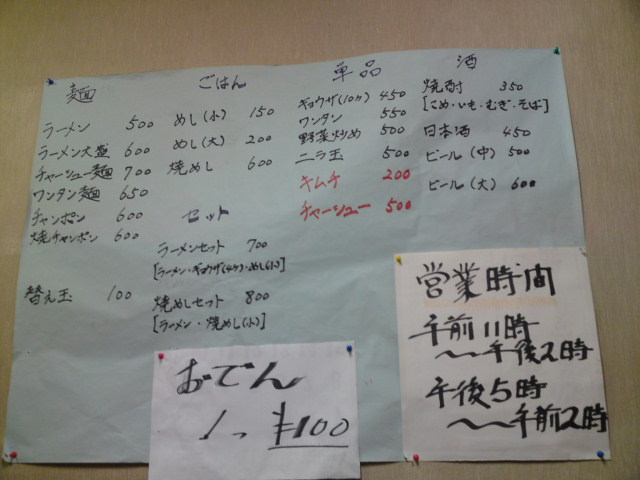 麺
ラーメン 500
ラーメン大盛 600
チャーシュー麺 700
ワンタン麺 650
チャンポン 600
焼チャンポン 600
替え玉 100
ごはん
めし(小) 150
めし(大) 200
焼めし 600
セット
ラーメンセット 700
[ラーメン・ギョウザ(4ケ)・めし(小)]
焼めしセット 800
[ラーメン・焼めし(小)]
単品
ギョウザ(10ケ) 450
ワンタン 550
野菜炒め 500
ニラ玉 500
キムチ 200
チャーシュー 500
酒
焼酎 350
[こめ・いも・むぎ・そば]
日本酒 450
ビール(中) 500
ビール(大) 600
おでん
1つ ¥100
営業時間
午前11時
〜午後2時
午後5時
〜午前2時